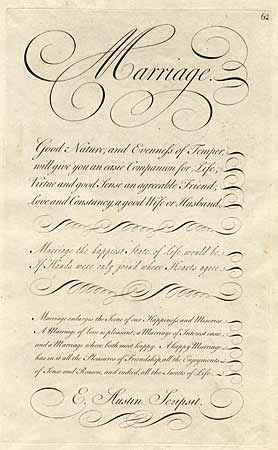 62
Marriage.
Good Nature, and Evenness of Temper,
will give you an easie Companion for Life;
Virtue and good Sense an agreeable Friend;
Love and Constancy a good Wife or Husband.
Marriage the happiest State of Life would be,
If Hands were only joind where Hearts agree.
Marriage enlarges the Scene of our Happiness and Miseries
A Marriage of Love is pleasant; a Marriage of Interest easie;
and a Marriage where both meet happy. A happy Marriage
has in it all the Pleasures of Friendship, all the Enjoyments
of Sense and Reason, and indeed, all the Sweets of Life.
E. Austin Scripsit.